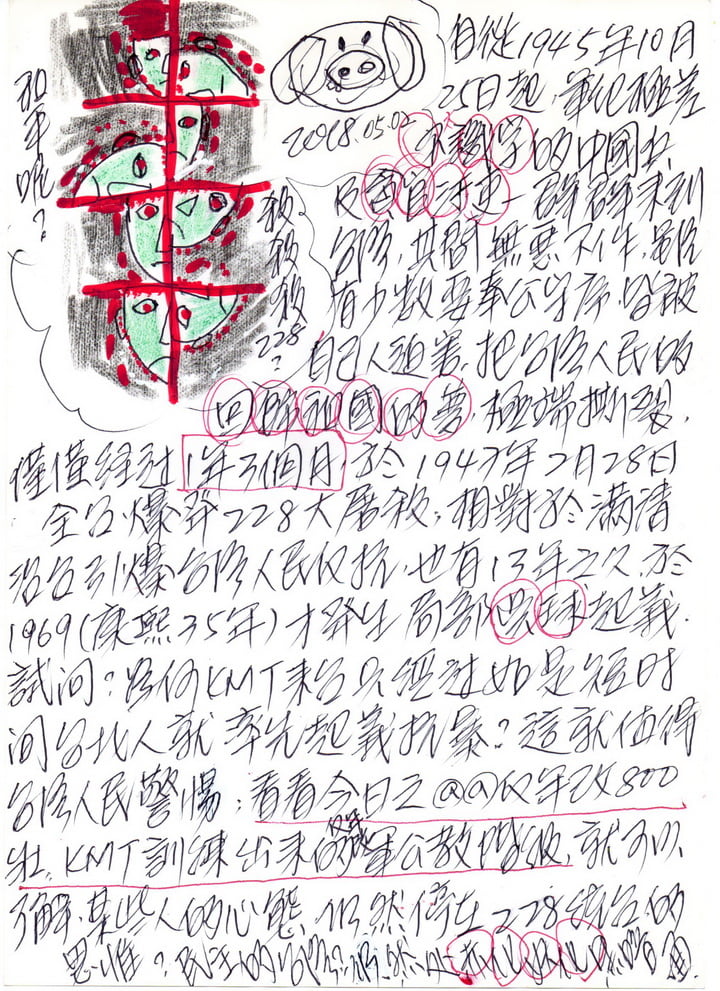 和平呢？
殺殺殺228？
2018.05.02
自從1945年10月
25日起，軍紀極差
不識字的中國兵
及 一群群來到
台灣，其間無惡不作，雖
有少數要奉公守 ，皆被
自己人迫害，把台灣人民的
回歸祖國的夢，極端撕裂，
僅僅經過1年3個月，於1947年2月28日
全台爆發228大屠殺，相對於滿清
治台引爆台灣人民反抗，也有13年之久，於
1969(康熙35年)才發生局部 球起義，
試問？為何KMT來台只經過如是短時
間台北人就率先起義抗暴？這就值得
台灣人民警惕；看看今日之@@反年改800
壯，KMT訓練出來的反年改軍公教階級，就可以
了解，某些人的心態，仍然停在228統台的
思惟？民主的台灣？